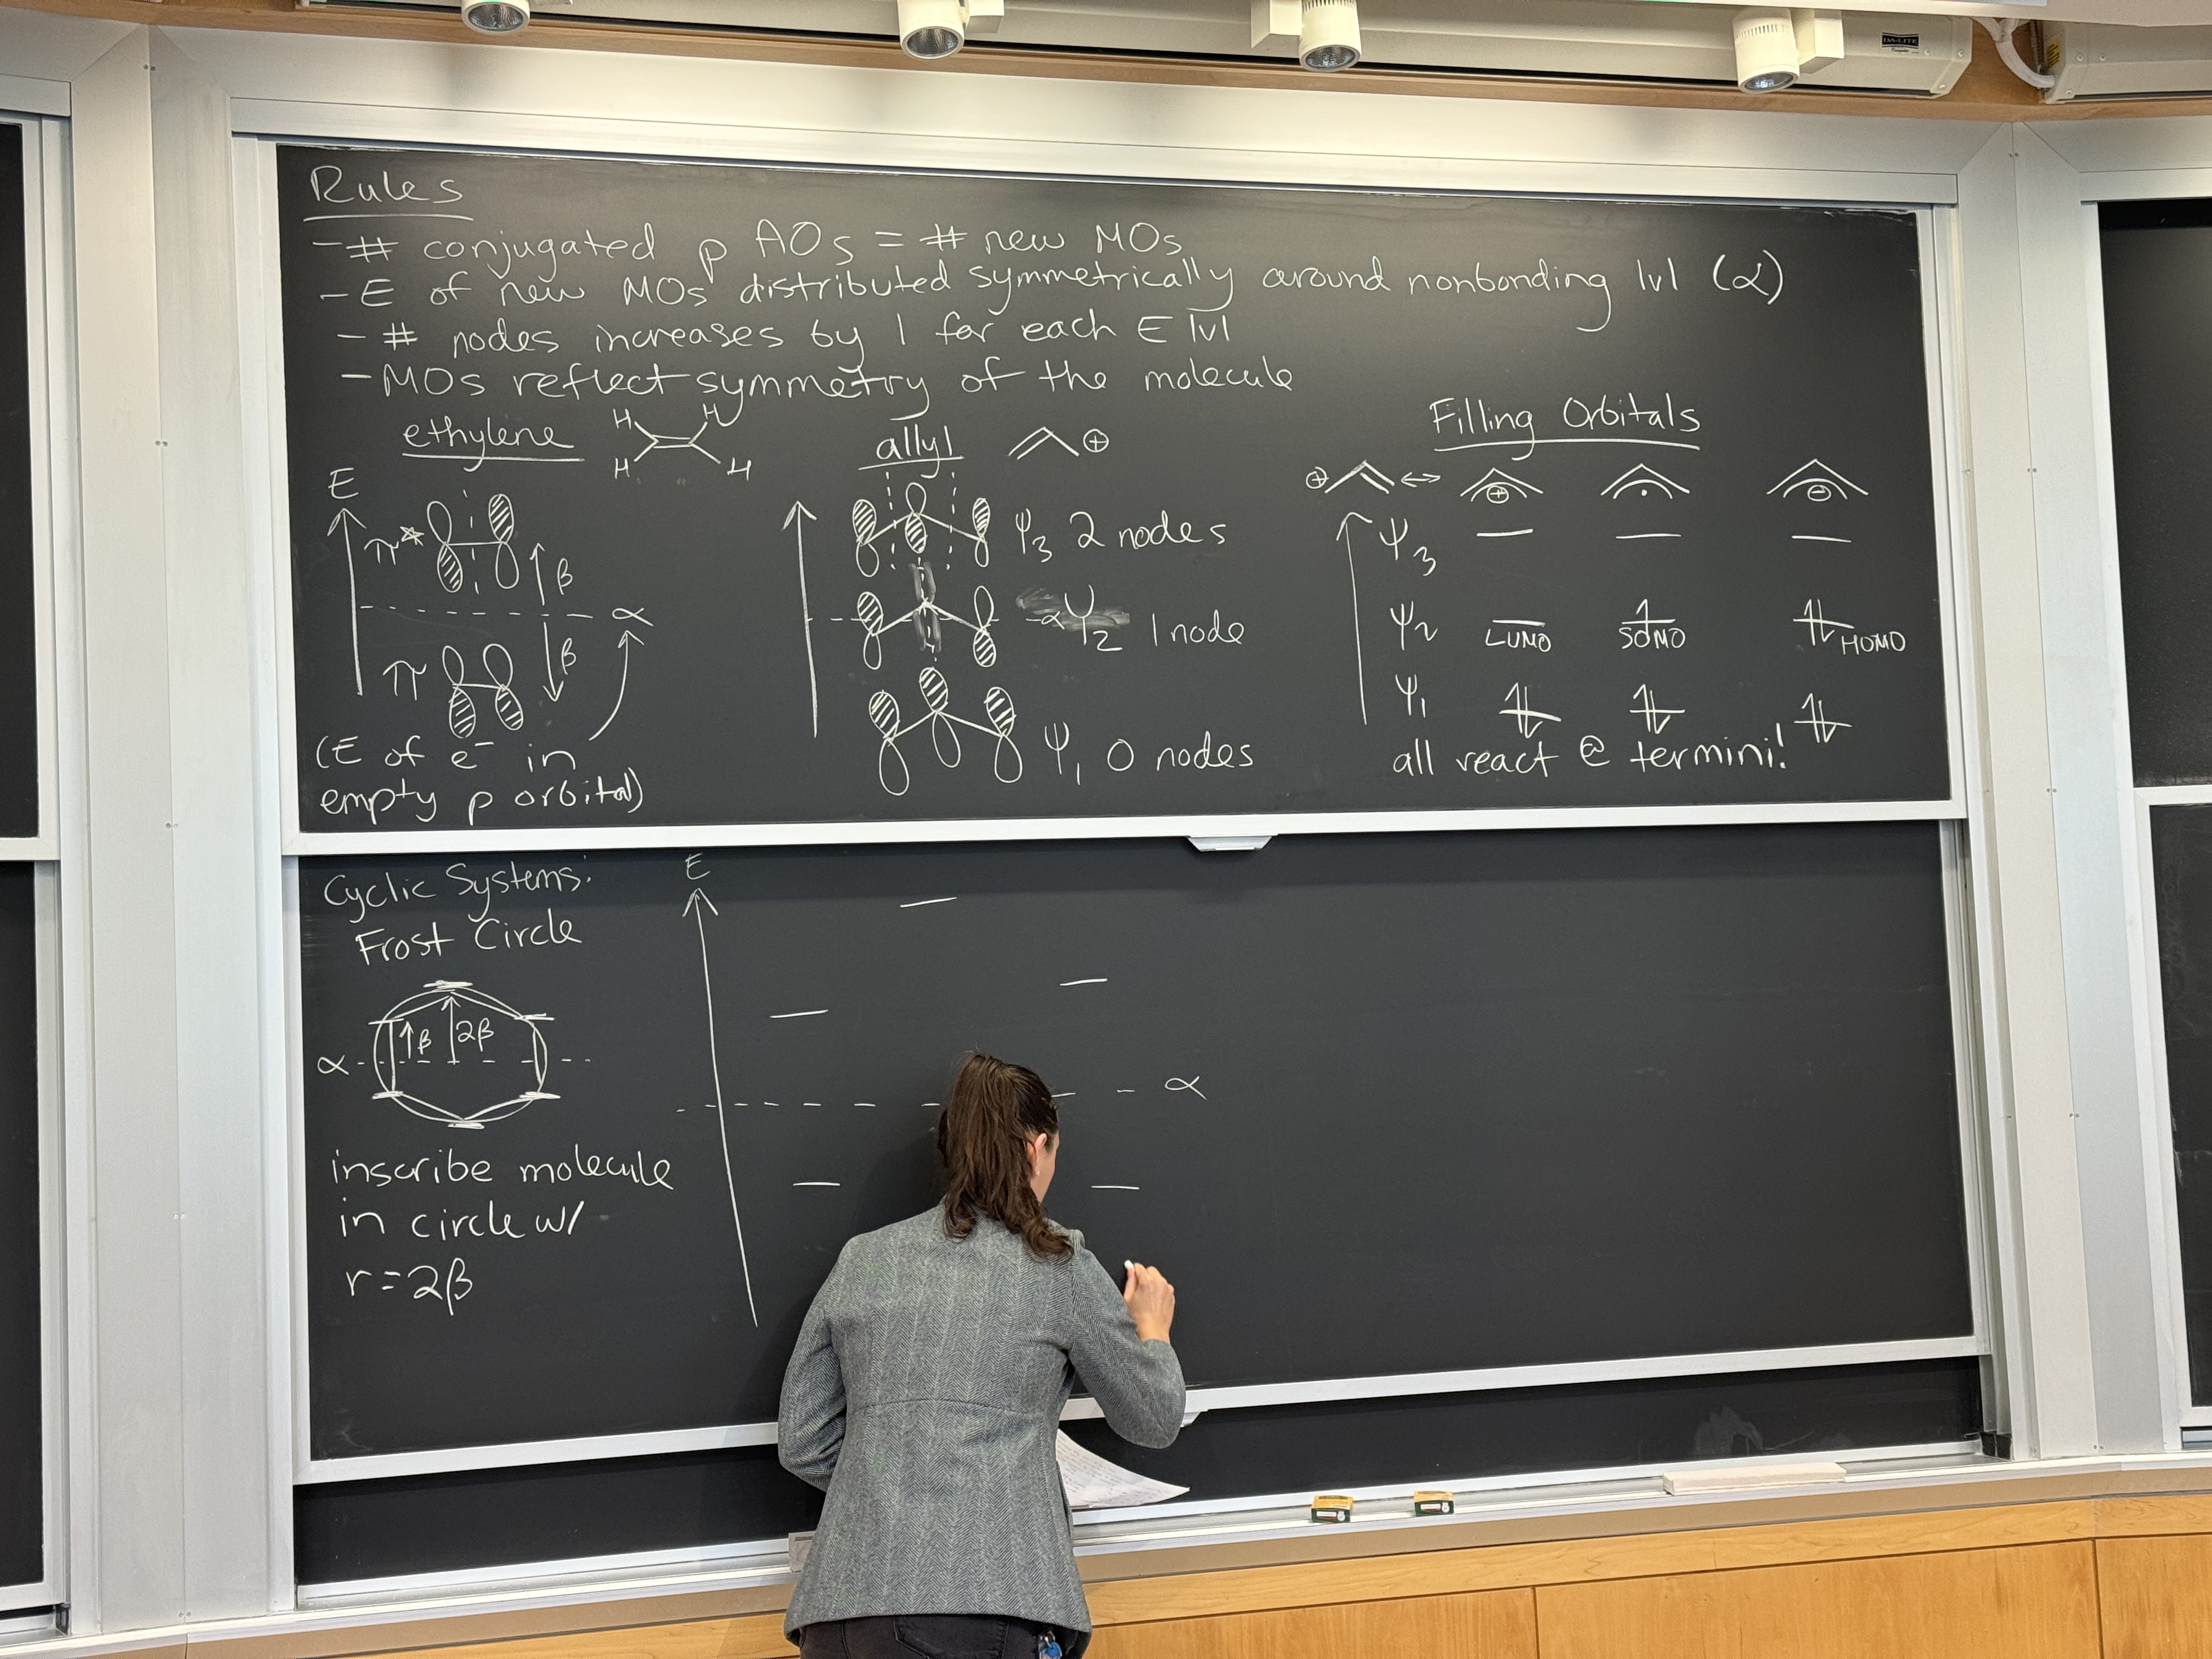 DA-LITE
Rules
- # conjugated p AOs = # new MOs
- E of new MOs distributed symmetrically around nonbonding lvl (α)
- # nodes increases by 1 for each E lvl
- MOs reflect symmetry of the molecule
ethylene
H H
H H
E
π*
β
α
β
π
(E of e⁻ in
empty p orbital)
allyl
⊕
ψ3 2 nodes
α ψ2 1 node
ψ1 0 nodes
Filling Orbitals
⊕ ↔ ⊕ · ⊖
ψ3
ψ2 LUMO SOMO HOMO
ψ1
all react @ termini!
Cyclic Systems:
Frost Circle
β 2β
α
inscribe molecule
in circle w/
r=2β
E
α